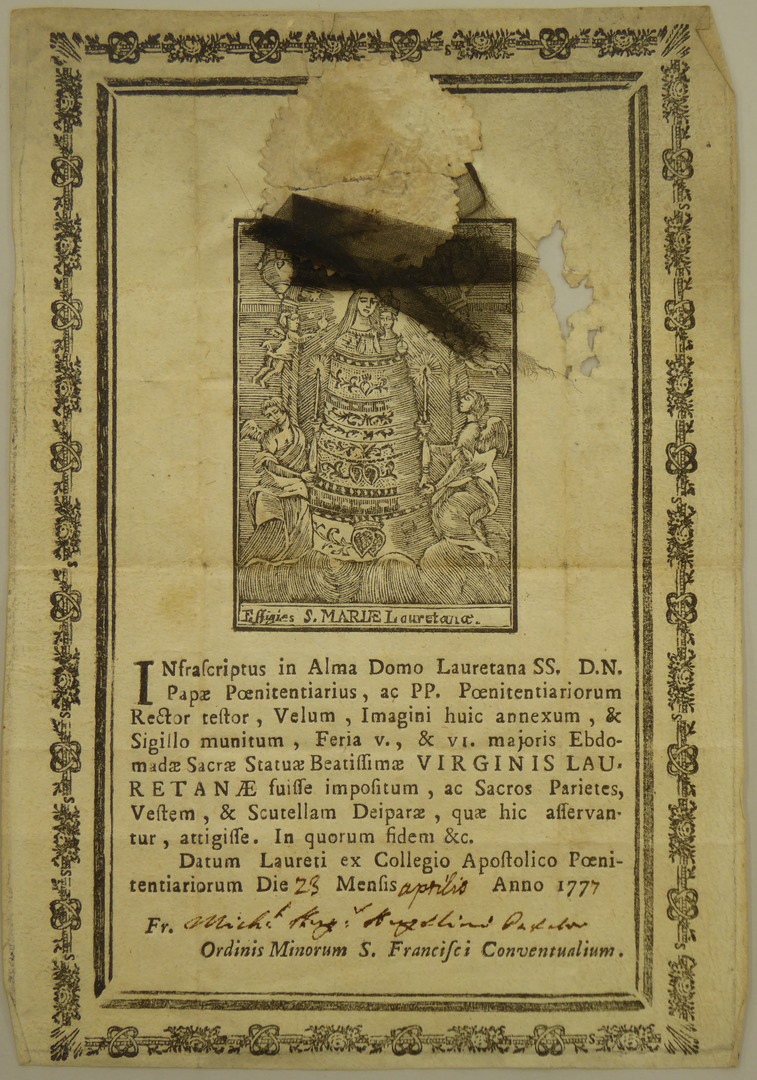 Effigies S. MARIÆ Lauretanæ.
INfraſcriptus in Alma Domo Lauretana SS. D.N.
Papæ Pœnitentiarius, ac PP. Pœnitentiariorum
Rector teſtor, Velum, Imagini huic annexum, &
Sigillo munitum, Feria v., & vi. majoris Ebdo-
madæ Sacræ Statuæ Beatiſſimæ VIRGINIS LAU-
RETANÆ fuiſſe impoſitum, ac Sacros Parietes,
Veſtem, & Scutellam Deiparæ, quæ hic aſſervan-
tur, attigiſſe. In quorum fidem &c.
Datum Laureti ex Collegio Apoſtolico Pœni-
tentiariorum Die 23 Menſis aprilis Anno 1777
Fr.
Ordinis Minorum S. Franciſci Conventualium.